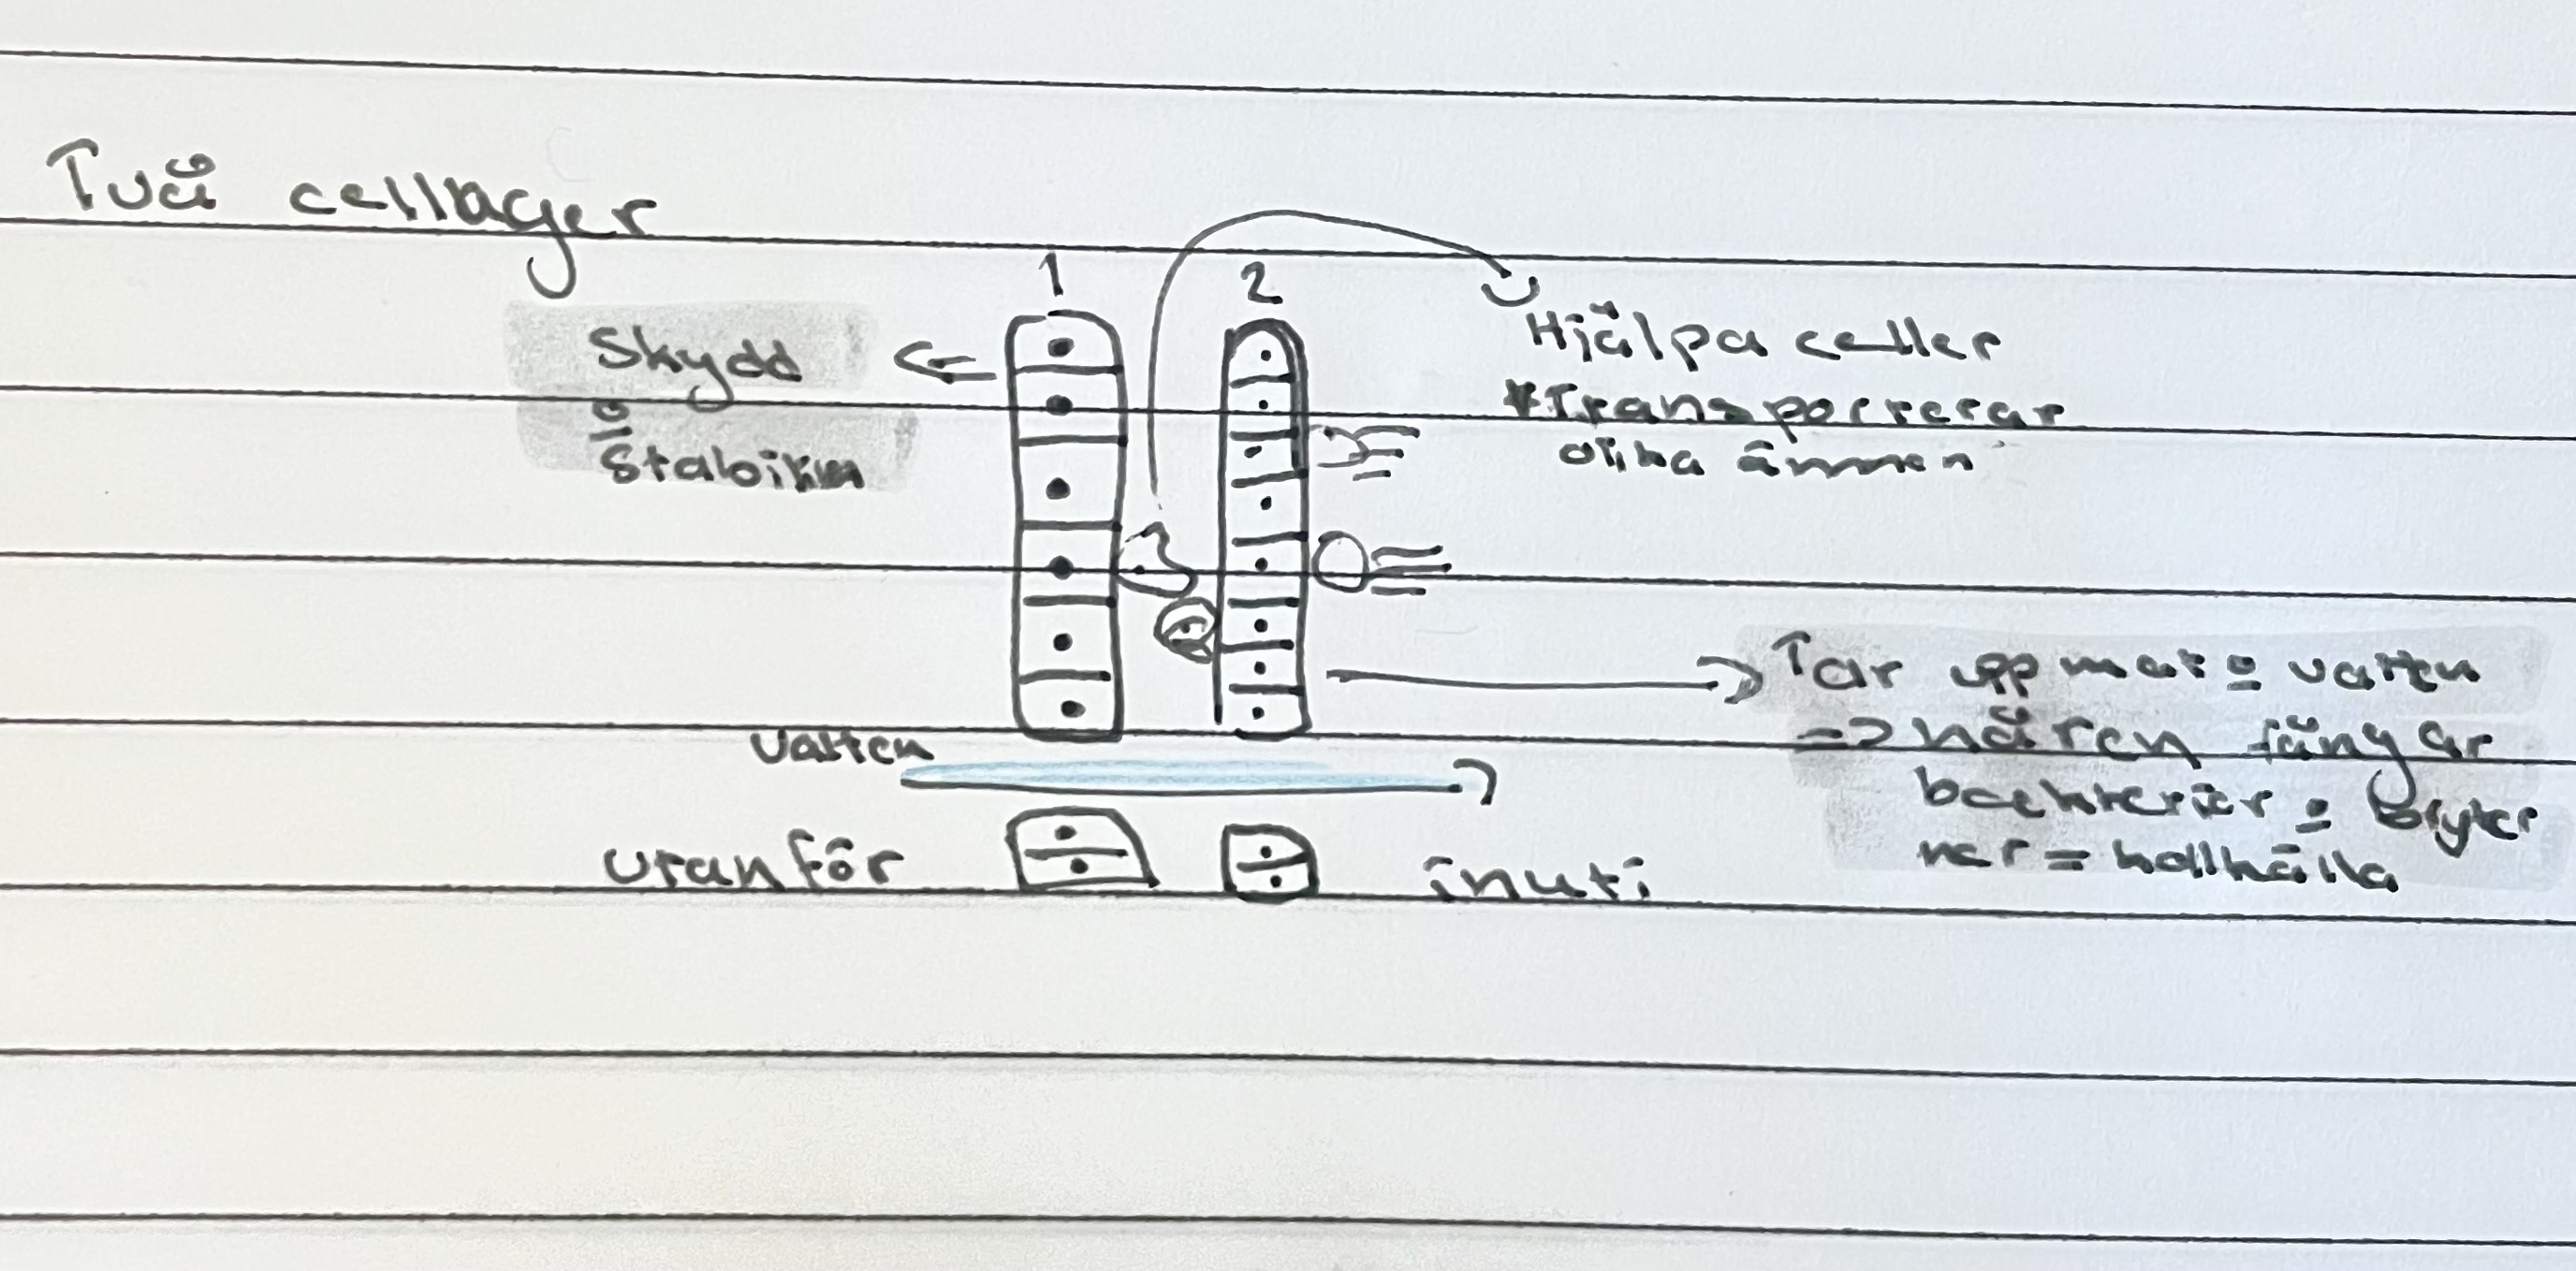 Två cellager
1
2
Skydd
o
Hjälpa celler
*Transporterar
olika ämnen
Tar upp mat o vatten
=> håren fångar
backterier o bryter
ner = kollhålla
Vatten
utanför
inuti